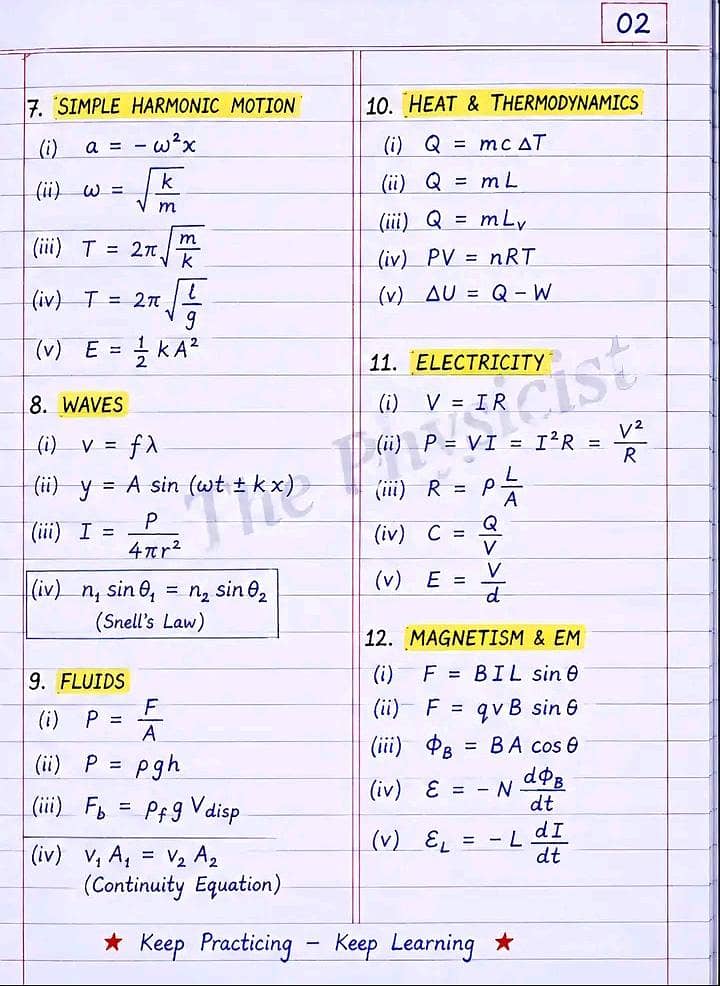 02
7. SIMPLE HARMONIC MOTION
(i) a = -ω²x
(ii) ω = √(k/m)
(iii) T = 2π√(m/k)
(iv) T = 2π√(l/g)
(v) E = ½ kA²
8. WAVES
(i) v = fλ
(ii) y = A sin (ωt ± kx)
(iii) I = P/4πr²
(iv) n₁ sinθ₁ = n₂ sinθ₂
(Snell's Law)
9. FLUIDS
(i) P = F/A
(ii) P = ρgh
(iii) F_b = ρ_f g V_disp
(iv) v₁ A₁ = v₂ A₂
(Continuity Equation)
10. HEAT & THERMODYNAMICS
(i) Q = mcΔT
(ii) Q = mL
(iii) Q = mL_v
(iv) PV = nRT
(v) ΔU = Q - W
11. ELECTRICITY
(i) V = IR
(ii) P = VI = I²R = V²/R
(iii) R = ρ L/A
(iv) C = Q/V
(v) E = V/d
12. MAGNETISM & EM
(i) F = BIL sinθ
(ii) F = qvB sinθ
(iii) Φ_B = BA cosθ
(iv) ε = -N dΦ_B/dt
(v) ε_L = -L dI/dt
★ Keep Practicing – Keep Learning ★
The Physicist